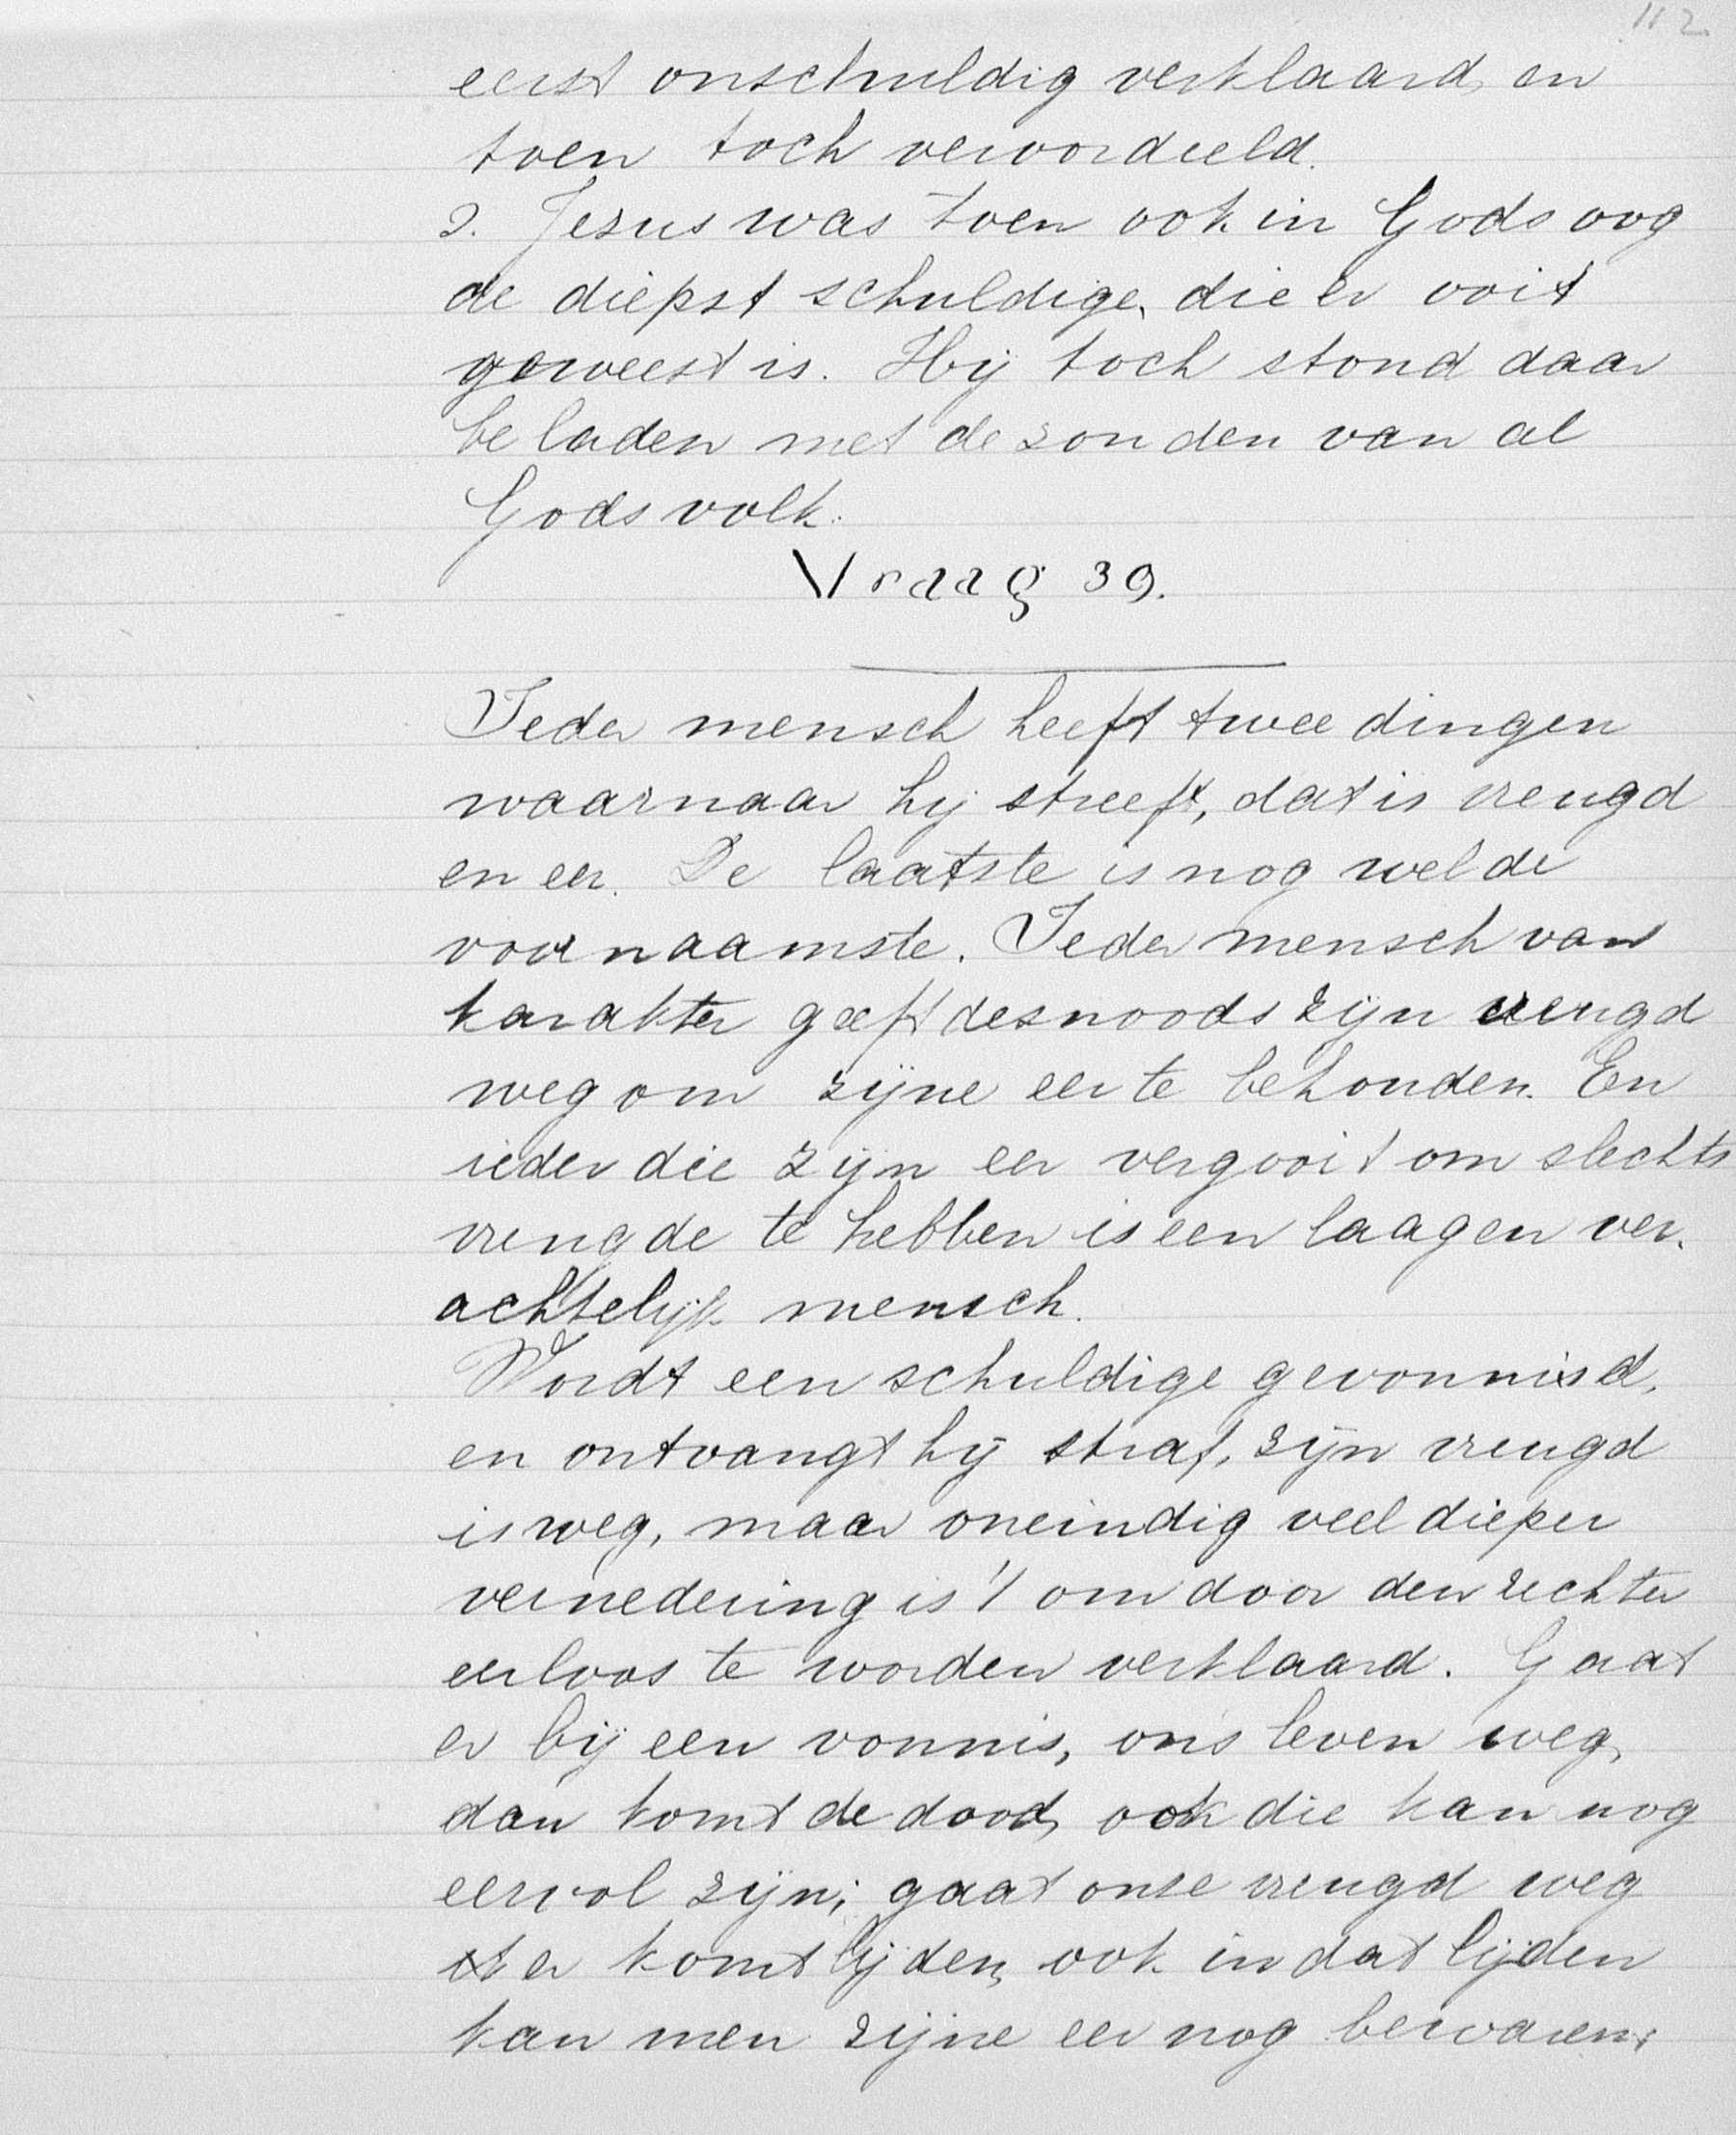 112
eerst onschuldig verklaard, en
toen toch veroordeeld.
2. Jezus was toen ook in Gods oog
de diepst schuldige, die er ooit
geweest is. Hij toch stond daar
beladen met de zonden van al
Gods volk.
Vraag 39.
Ieder mensch heeft twee dingen
waarnaar hij streeft, dat is vreugd
en eer. De laatste is nog wel de
voornaamste. Ieder mensch van
karakter geeft desnoods zijn vreugd
weg om zijne eer te behouden. En
ieder die zijn eer vergooit om slechts
vreugde te hebben is een laag en ver-
achtelijk mensch.
Wordt een schuldige gevonnisd,
en ontvangt hij straf, zijn vreugd
is weg, maar oneindig veel dieper
vernedering is 't om door den rechter
eerloos te worden verklaard. Gaat
er bij een vonnis, ons leven weg,
dan komt de dood, ook die kan nog
eervol zijn; gaat onze vreugd weg
er komt lijden, ook in dat lijden
kan men zijne eer nog bewaren;